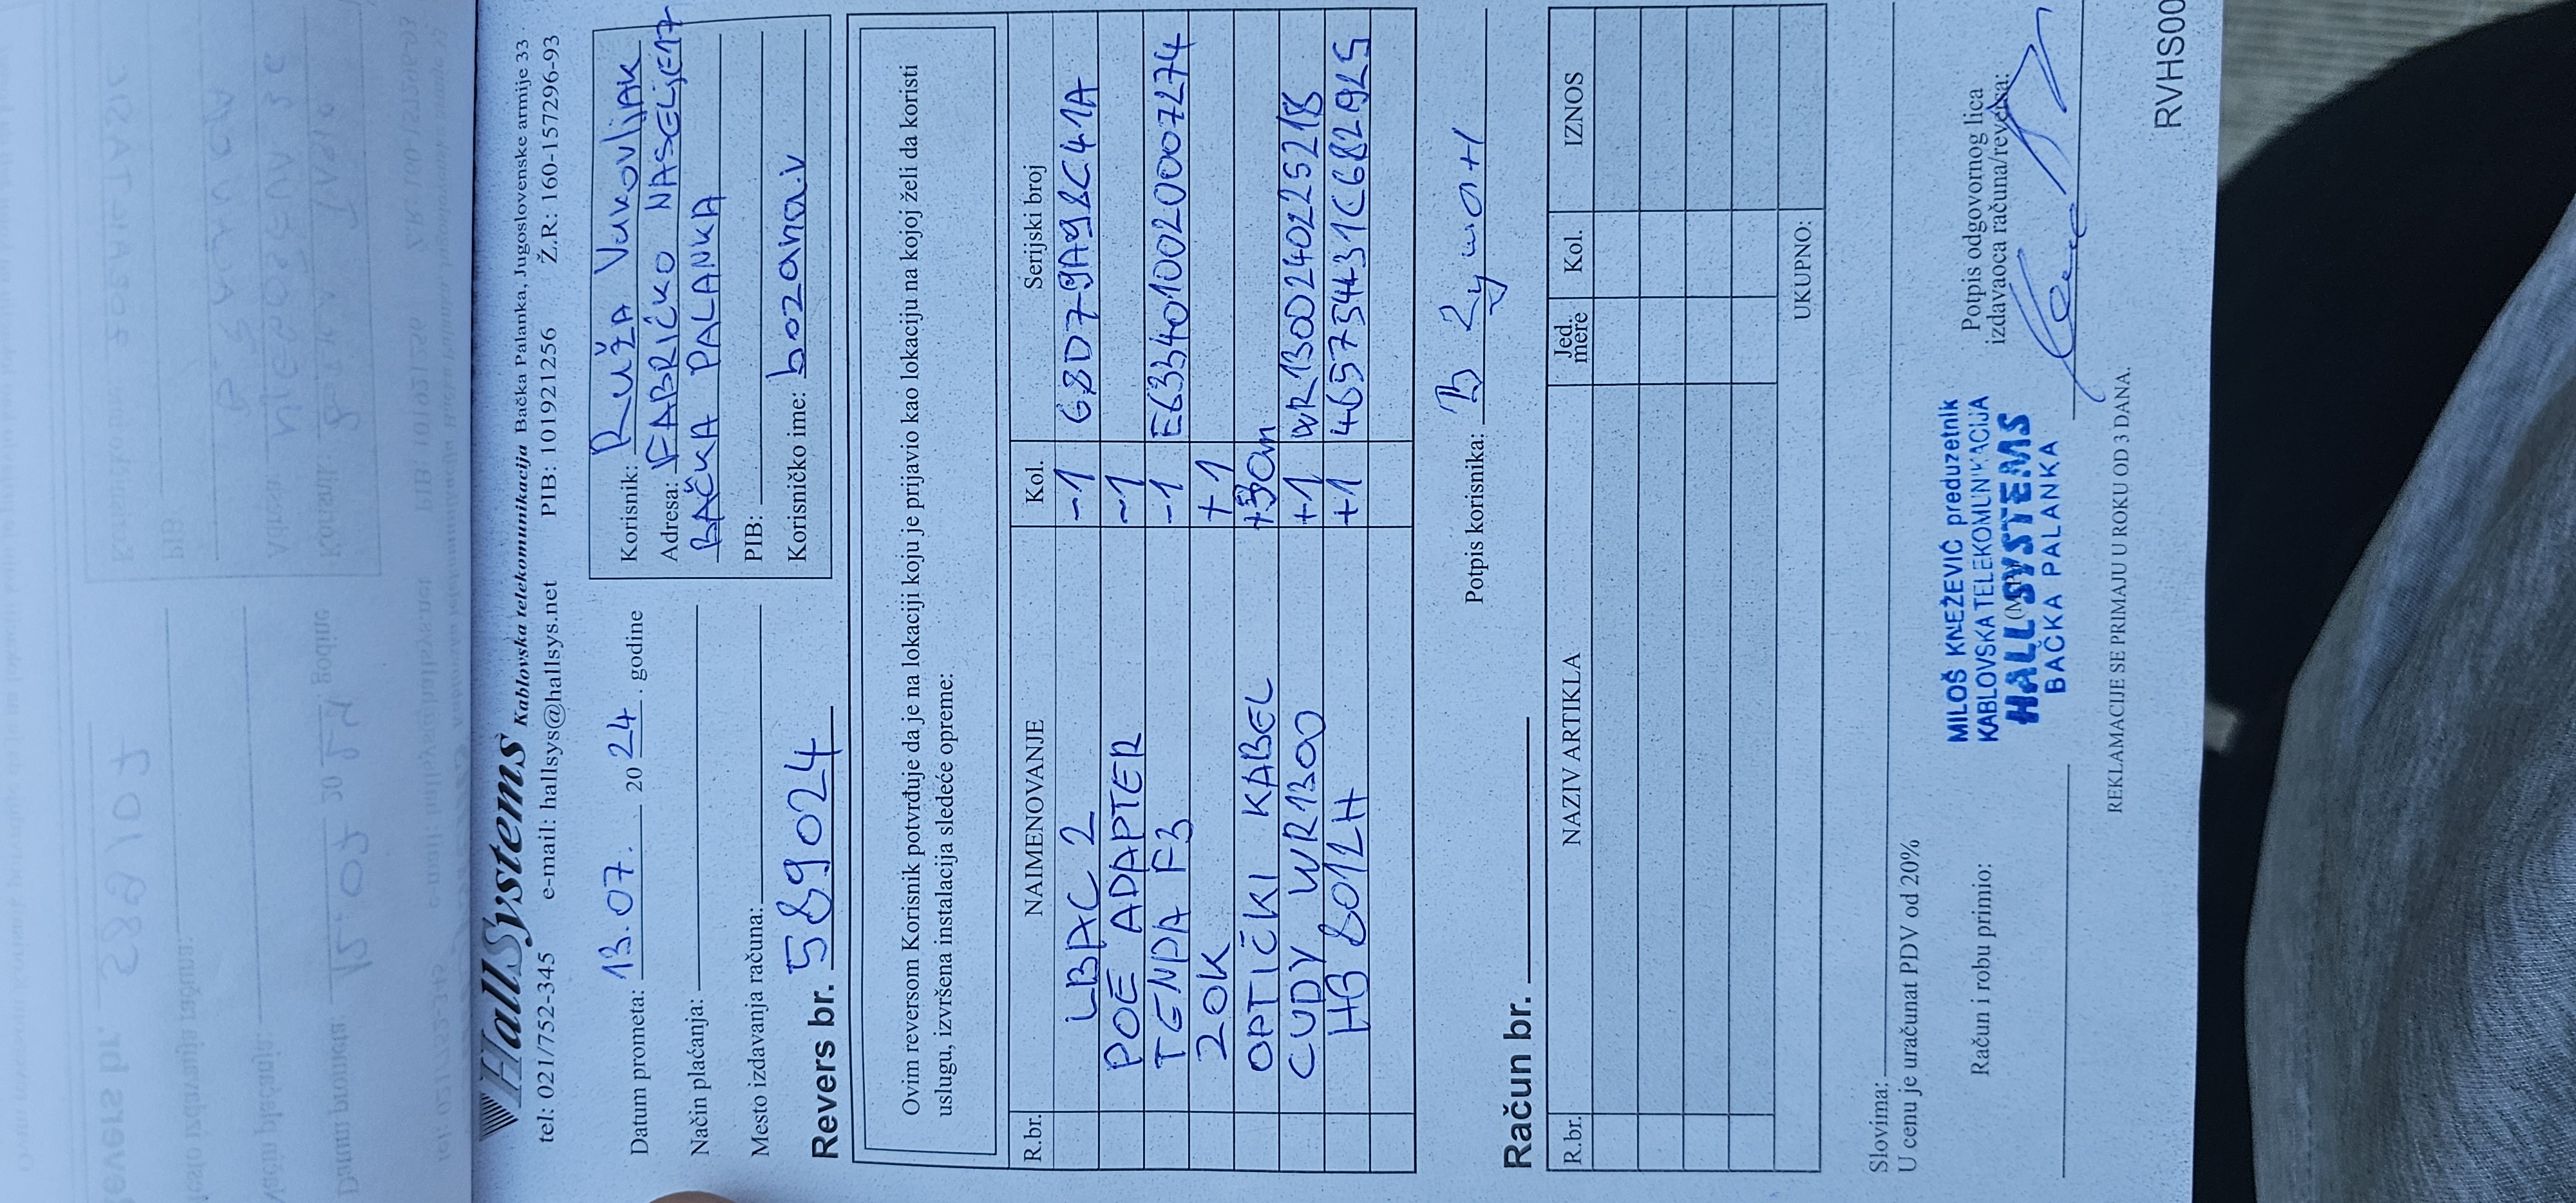 HallSystems Kablovska telekomunikacija Bačka Palanka, Jugoslovenske armije 33
tel: 021/752-345 e-mail: hallsys@hallsys.net PIB: 101921256 Ž.R: 160-157296-93
Datum prometa: 13.07. 2024. godine
Način plaćanja:
Mesto izdavanja računa:
Revers br. 589024
Korisnik: RUŽA Vukovljak
Adresa: FABRIČKO NASELJE 17
BAČKA PALANKA
PIB:
Korisničko ime: bozana.v
Ovim reversom Korisnik potvrđuje da je na lokaciji koju je prijavio kao lokaciju na kojoj želi da koristi
uslugu, izvršena instalacija sledeće opreme:
R.br. NAIMENOVANJE Kol. Serijski broj
LBAC 2 -1 68D79A98C41A
POE ADAPTER -1
TENDA F3 -1 E6334010020007274
ZOK +1
OPTIČKI KABEL +30m
CUDY WR1300 +1 WR1300240225218
HG 8012H +1 465754431C682925
Potpis korisnika:
Račun br.
R.br. NAZIV ARTIKLA Jed. mere Kol. IZNOS
UKUPNO:
Slovima:
U cenu je uračunat PDV od 20%
Račun i robu primio:
(M.P.)
MILOŠ KNEŽEVIĆ preduzetnik
KABLOVSKA TELEKOMUNIKACIJA
HALL SYSTEMS
BAČKA PALANKA
Potpis odgovornog lica
izdavaoca računa/reversa:
REKLAMACIJE SE PRIMAJU U ROKU OD 3 DANA.
RVHS00